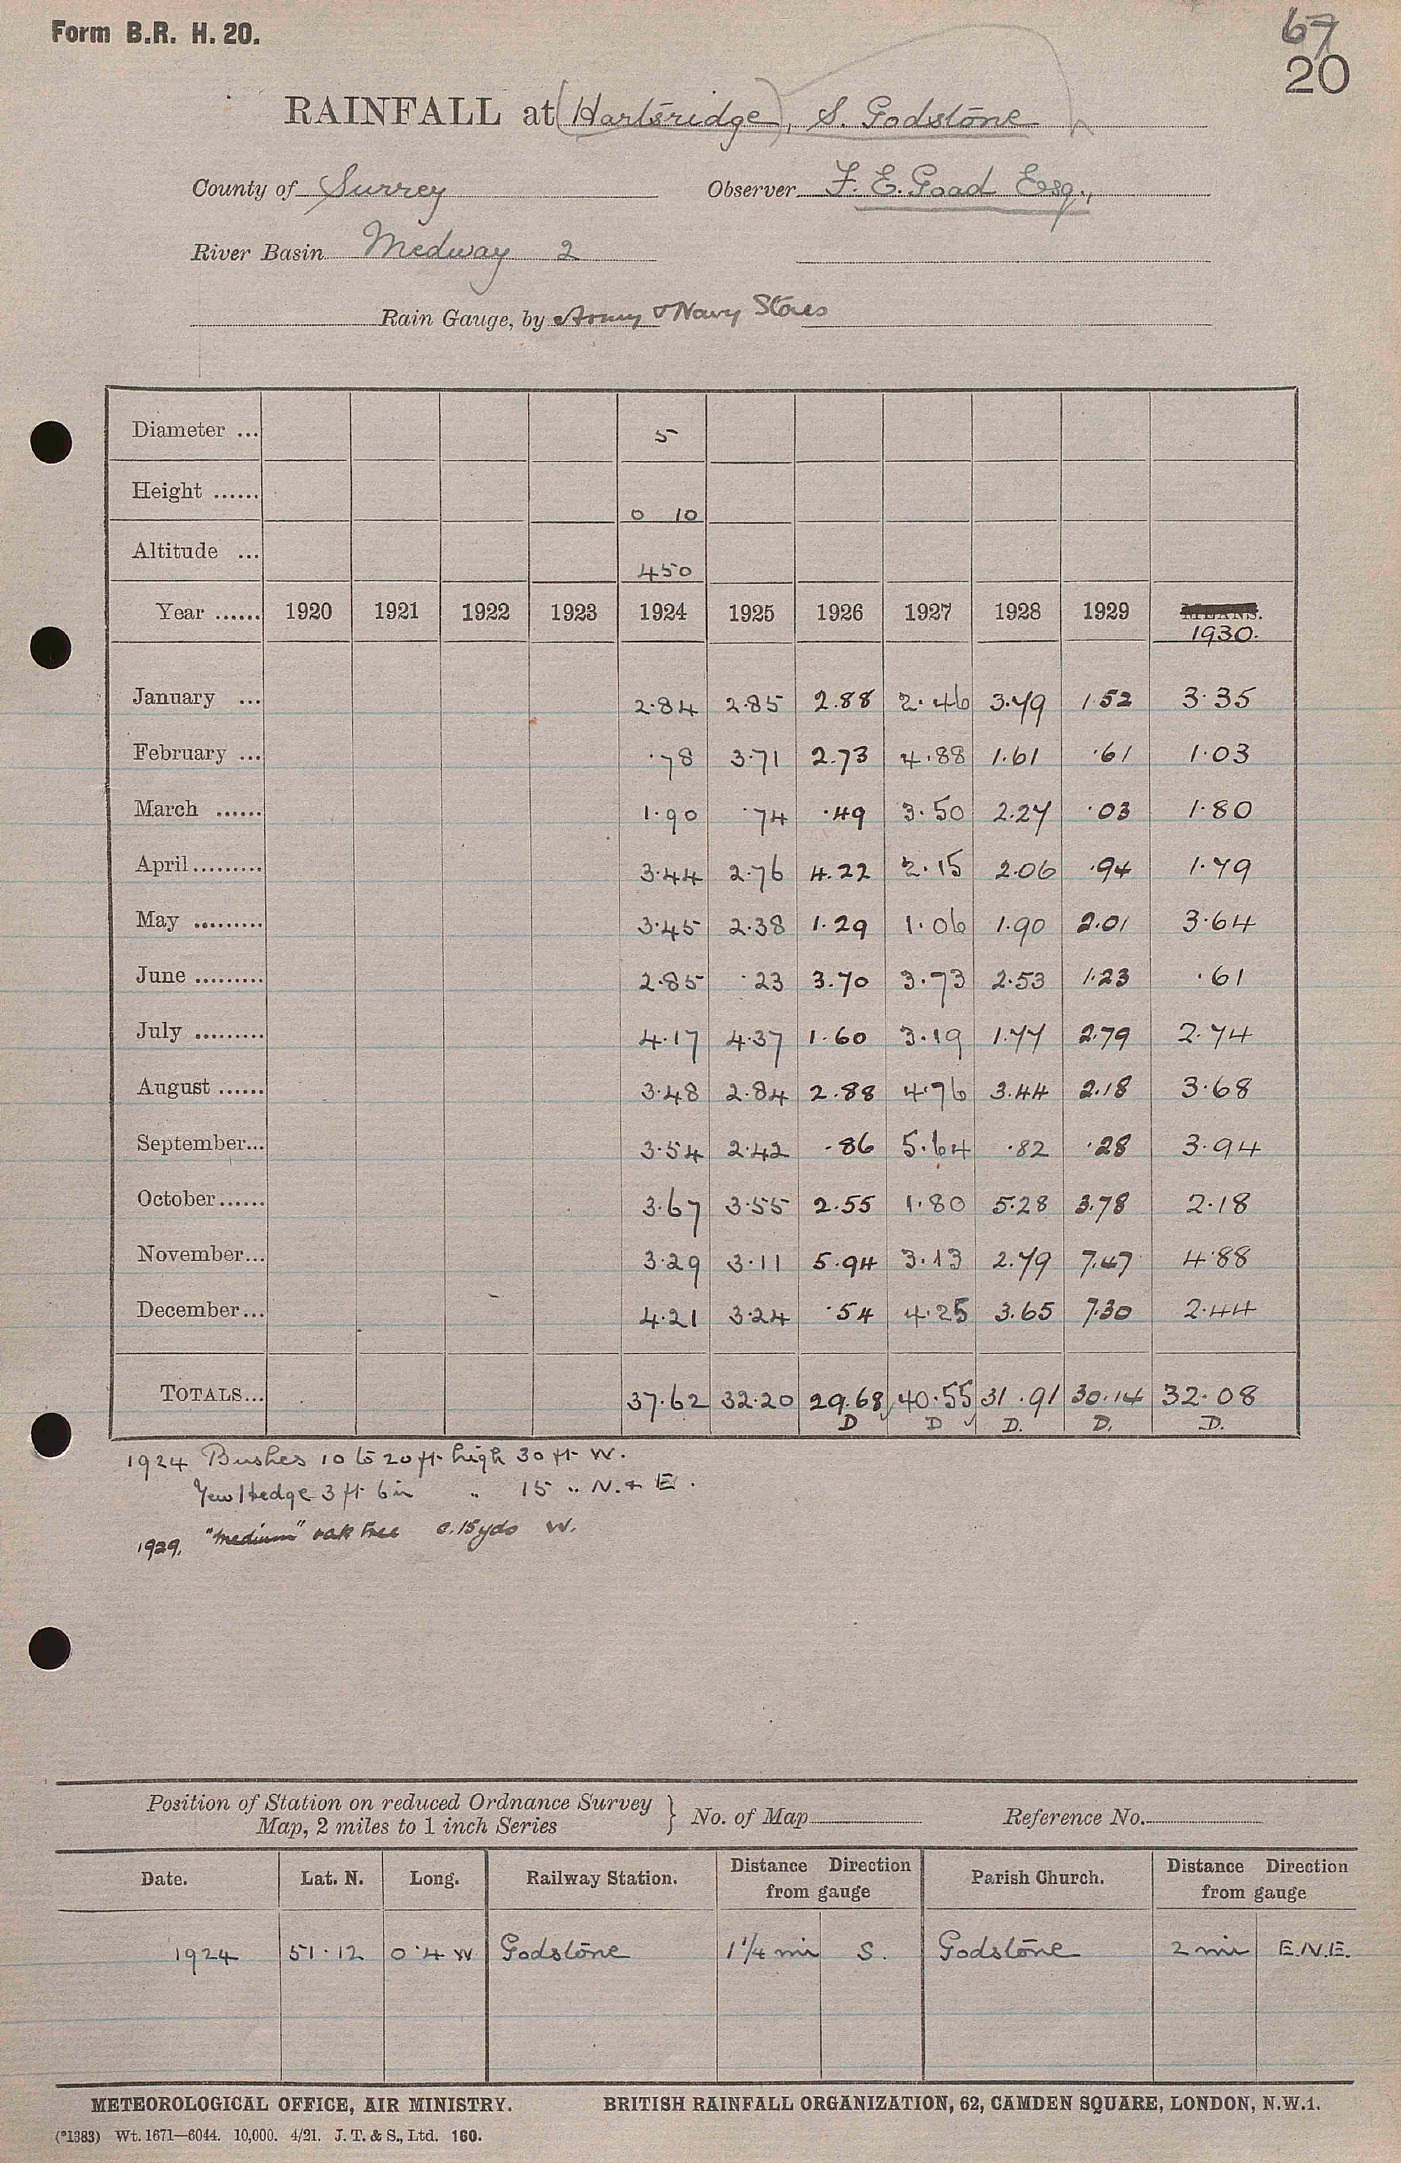 Form B.R. H. 20.
67
20
RAINFALL at (Hartsridge), S. Godstone
County of Surrey Observer F. E. Goad Esq.,
River Basin Medway 2
Rain Gauge, by Army & Navy Stores
Diameter ... 5
Height ...... 0 10
Altitude ... 450
Year ...... 1920 1921 1922 1923 1924 1925 1926 1927 1928 1929 MEANS.
1930.
January ... 2.84 2.85 2.88 2.46 3.79 1.52 3.35
February ... .78 3.71 2.73 4.88 1.61 .61 1.03
March ...... 1.90 .74 .49 3.50 2.27 .03 1.80
April ......... 3.44 2.76 4.22 2.15 2.06 .94 1.79
May ......... 3.45 2.38 1.29 1.06 1.90 2.01 3.64
June ......... 2.85 .23 3.70 3.73 2.53 1.23 .61
July ......... 4.17 4.37 1.60 3.19 1.77 2.79 2.74
August ...... 3.48 2.84 2.88 4.76 3.44 2.18 3.68
September... 3.54 2.42 .86 5.64 .82 .28 3.94
October ...... 3.67 3.55 2.55 1.80 5.28 3.78 2.18
November... 3.29 3.11 5.94 3.13 2.79 7.47 4.88
December... 4.21 3.24 .54 4.25 3.65 7.30 2.44
TOTALS... 37.62 32.20 29.68 40.55 31.91 30.14 32.08
D D D. D. D.
1924 Bushes 10 to 20 ft. high 30 ft W.
Yew Hedge 3 ft 6 in " 15 " N. & E.
1929. "medium" oak tree c. 15 yds W.
Position of Station on reduced Ordnance Survey
Map, 2 miles to 1 inch Series } No. of Map Reference No.
Date. Lat. N. Long. Railway Station. Distance Direction from gauge Parish Church. Distance Direction from gauge
1924 51.12 0.4 W Godstone 1 1/4 mi S. Godstone 2 mi E.N.E.
METEOROLOGICAL OFFICE, AIR MINISTRY. BRITISH RAINFALL ORGANIZATION, 62, CAMDEN SQUARE, LONDON, N.W.1.
(*1383) Wt. 1671—6044. 10,000. 4/21. J. T. & S., Ltd. 160.